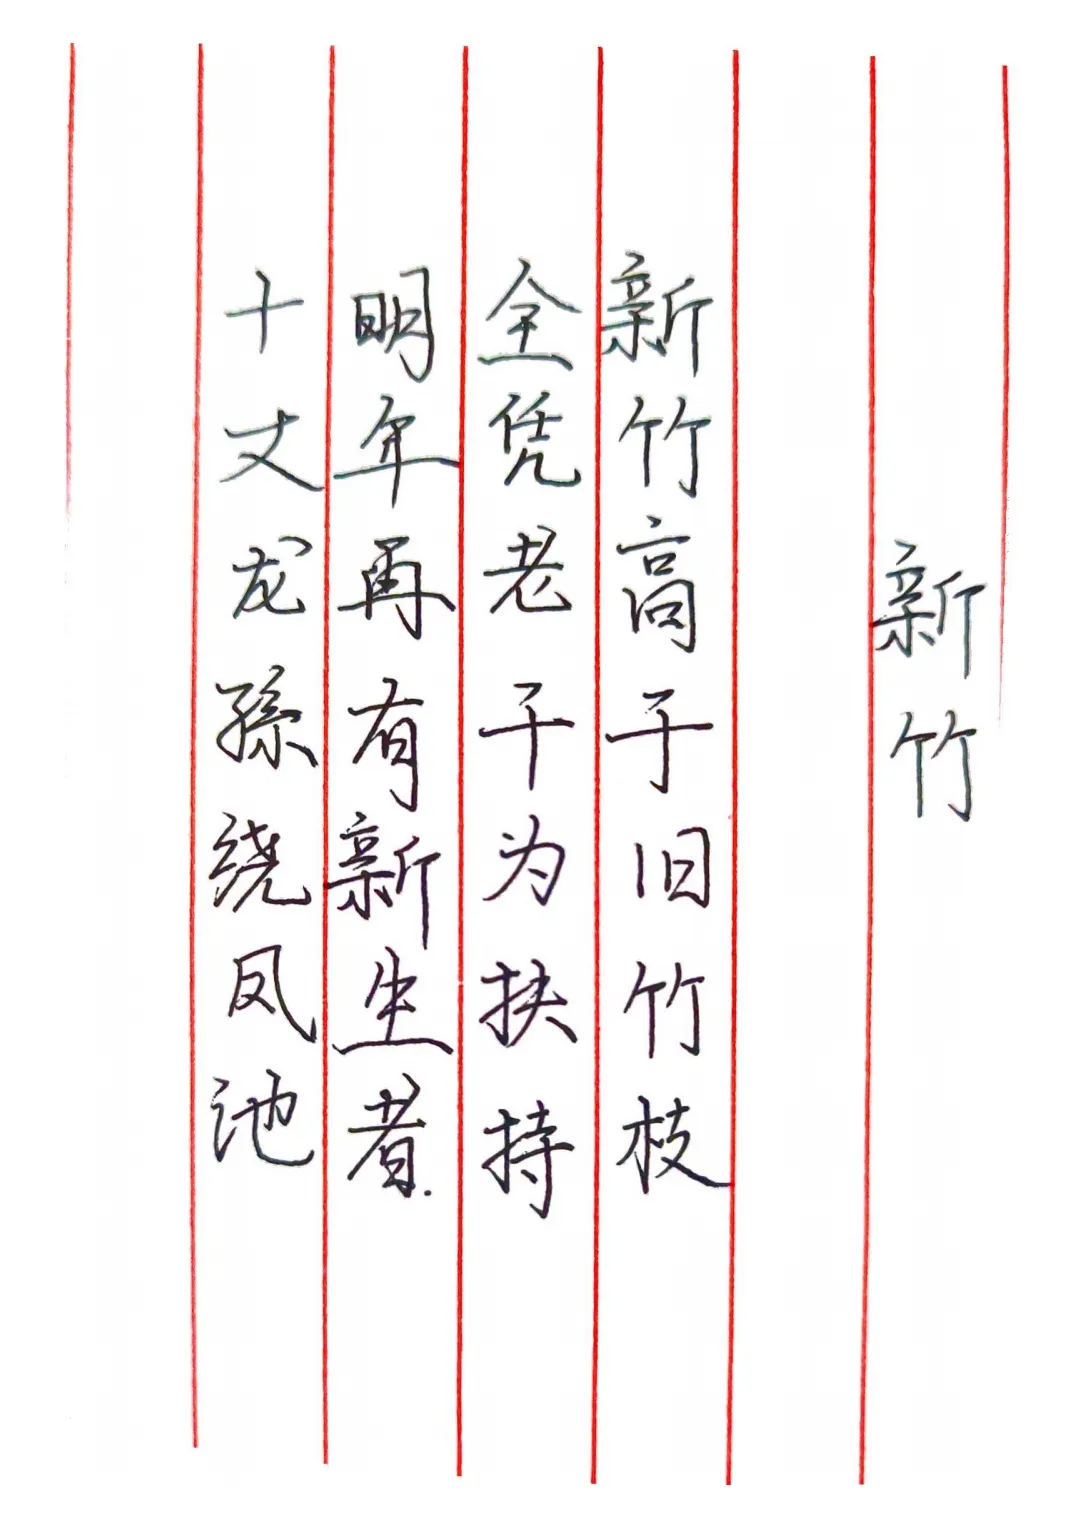 新竹
新竹高于旧竹枝
全凭老干为扶持
明年再有新生者
十丈龙孫绕凤池